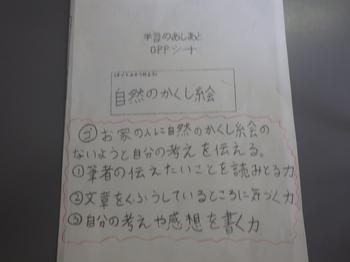 学習のあしあと
OPPシート
自然のかくし絵
ゴ お家の人に自然のかくし絵の
ないようと自分の考えを伝える。
①筆者の伝えたいことを読みとる力
②文章をくふうしているところに気づく力
③自分の考えや感想を書く力